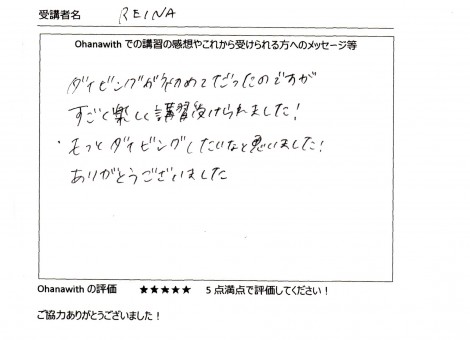 受講者名 REINA
Ohanawith での講習の感想やこれから受けられる方へのメッセージ等
ダイビングが初めてだったのですが
すごく楽しく講習受けられました!
・もっとダイビングしたいなと思いました!
ありがとうございました
Ohanawith の評価 ★★★★★ 5 点満点で評価してください!
ご協力ありがとうございました!